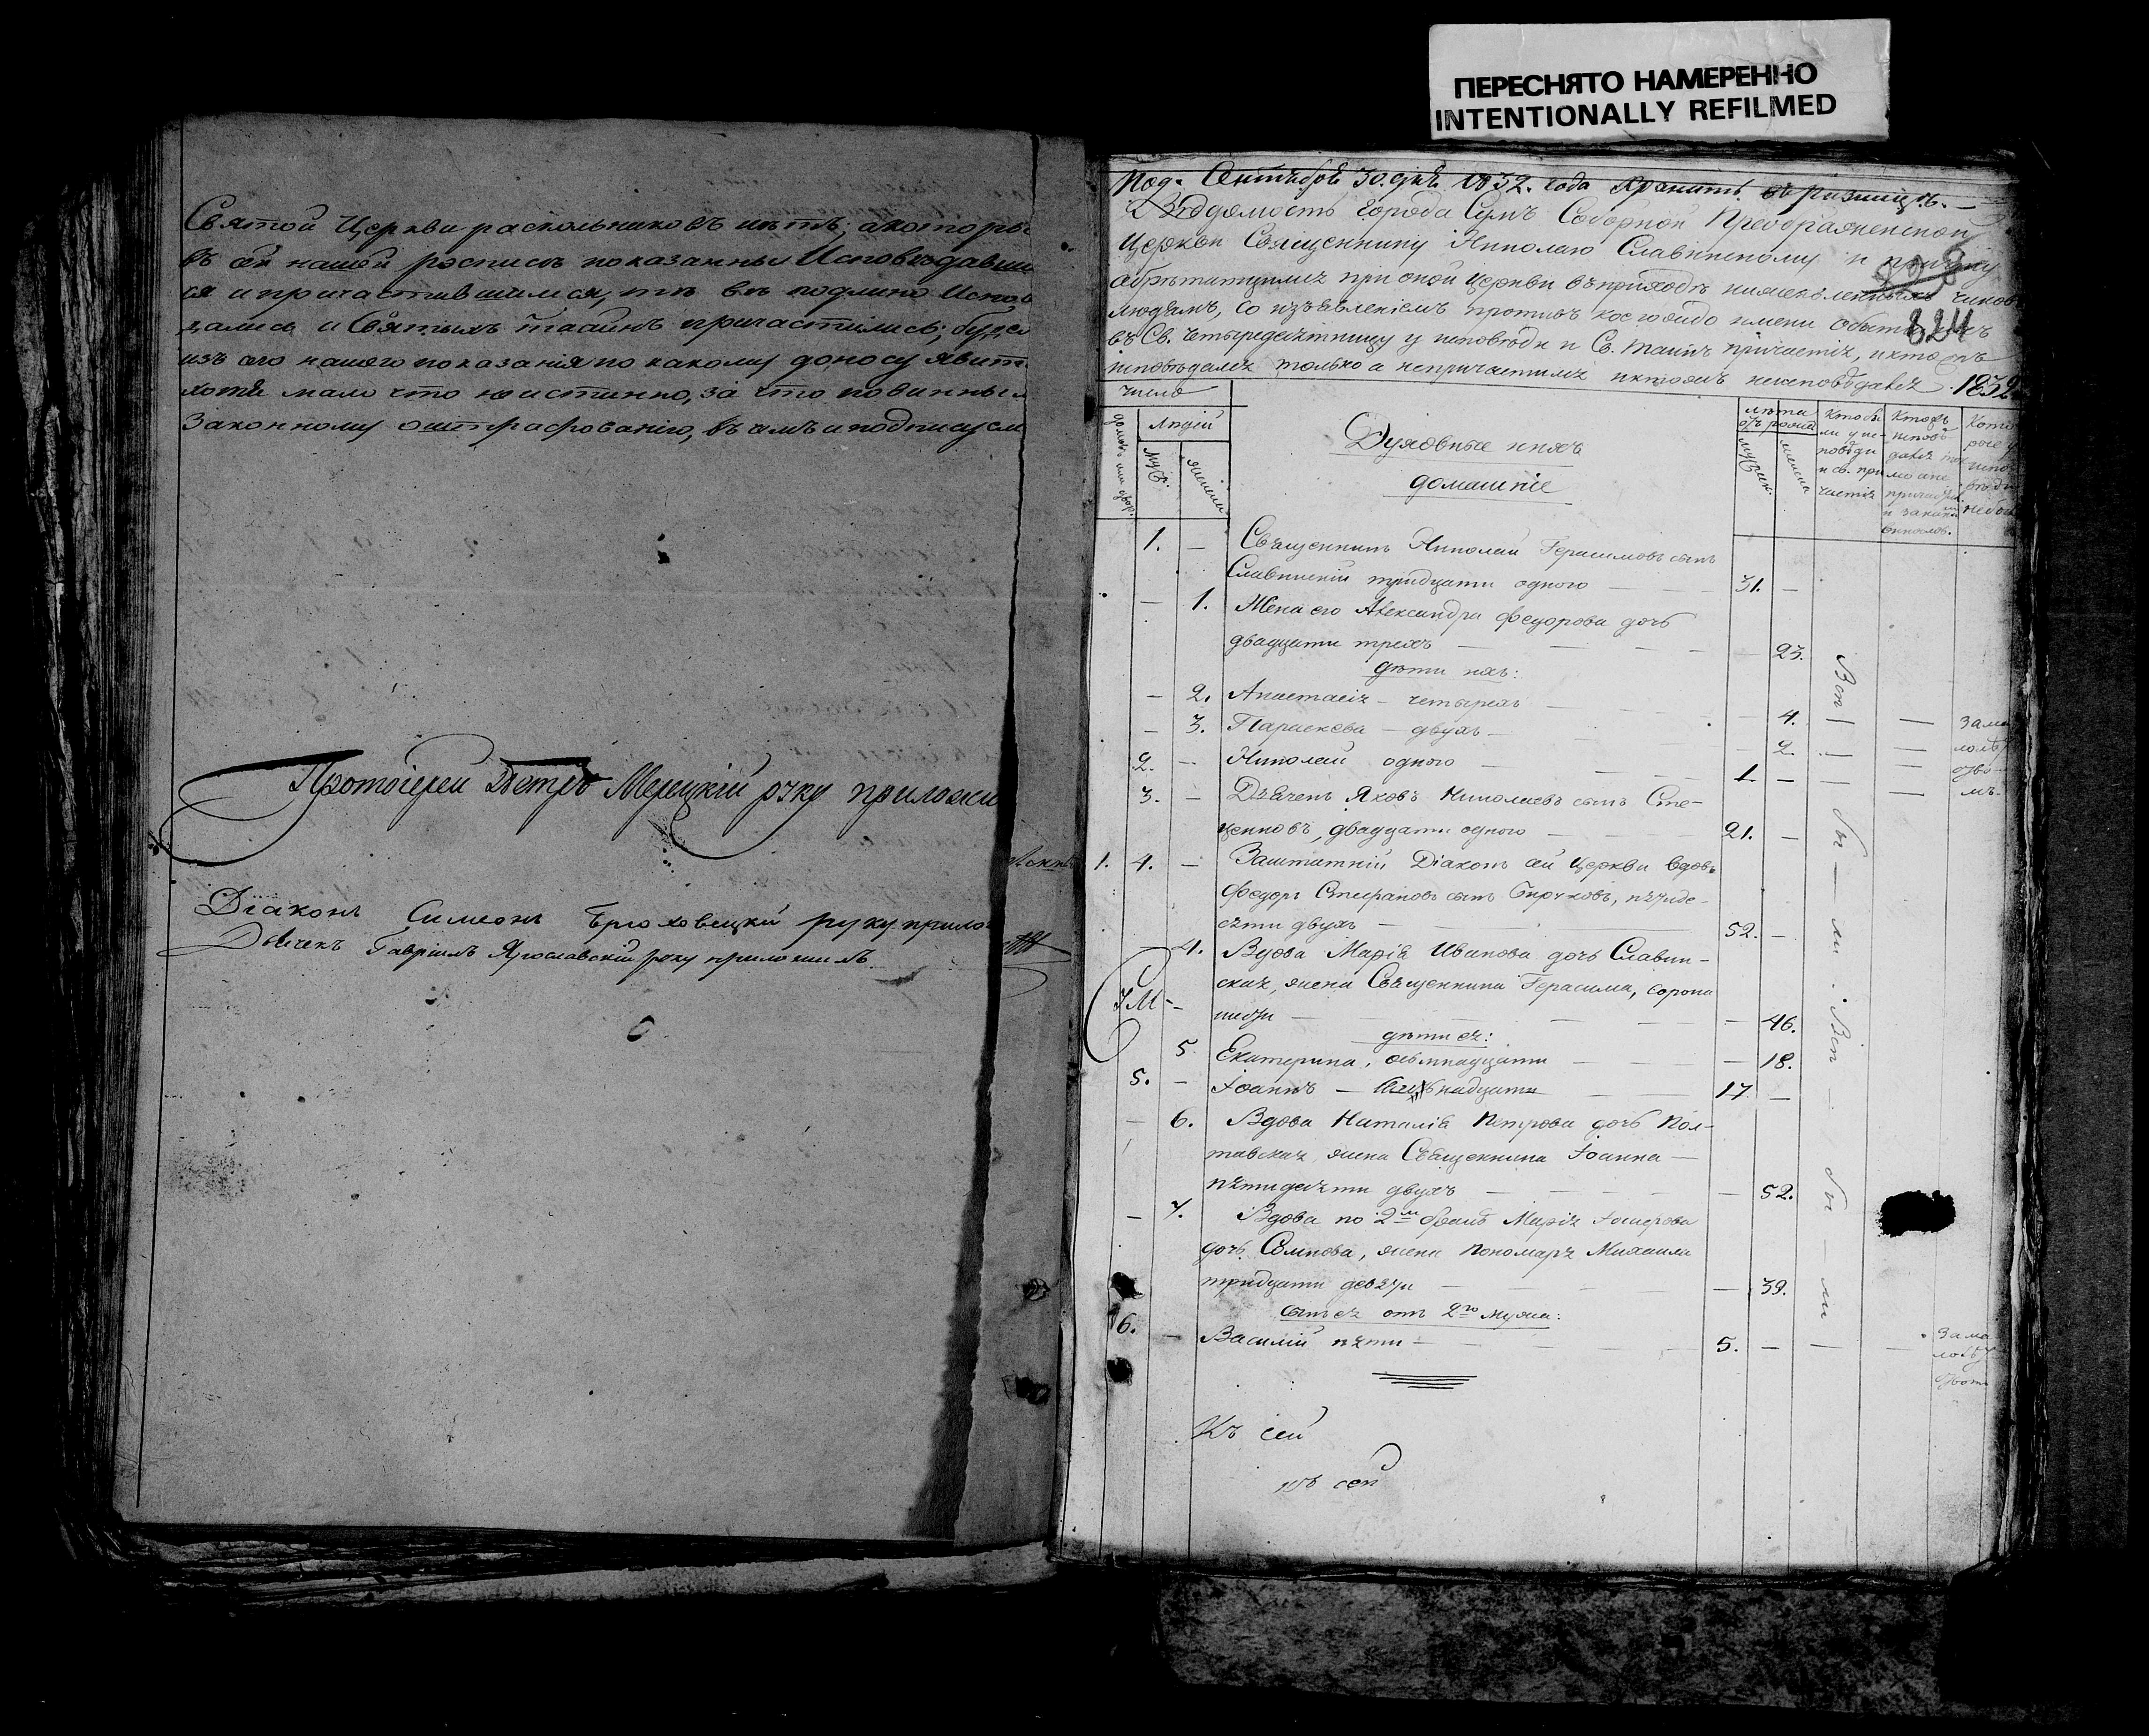 ПЕРЕСНЯТО НАМЕРЕННО
INTENTIONALLY REFILMED
Святой Церкви раскольниковъ нѣтъ; а которы
въ сей нашей росписѣ показанны Исповѣдавши
ся и причастившимися, тѣ въ подлино Испов
дались и Святыхъ таинъ причастились; буде
изъ сего нашего показанія по какому доносу явит
хотя мало что не истинно, за что повинны
Законному оштрафованію, въ чемъ и подписуем
Протоіерей Петръ Мерецкій руку приложи
Діаконъ Симеонъ Брюховецкій руку прило
Дьячекъ Гавріилъ Ярославскій руку приложилъ
Пол. Сентября 30. дня 1832. года хранить въ ризницѣ.
Вѣдомость города Сумъ Соборной Преображенской
Церкви Священнику Николаю Славинскому и причту
обрѣтающимся при оной Церкви въ приходѣ нижеявленныхъ чиновъ
людямъ, со изъявленіемъ противъ коегождо имени о бытіи ихъ
въ Св. четыредесятницу у исповѣди и Св. таинъ причастія, и кто
исповѣдался только а не причастился и кто не исповѣдался
824
1832
число
домовъ или двор.
людей
муж.
женск.
Духовные и ихъ
домашніе
лѣта
отъ рожд.
мужск.
женска
Кто бы
ли у ис-
повѣди
и св. при
частія
1. — Священникъ Николай Герасимовъ сынъ
Славинскій тридцати одного — 31. —
— 1. Жена его Александра Федорова дочь
двадцати трехъ — 23.
дѣти ихъ:
— 2. Анастасія — четырехъ — 4.
— 3. Параскева — двухъ — 2.
2. — Николай одного — 1. —
3. — Дьячекъ Яковъ Николаевъ сынъ Сте-
ценковъ, двадцати одного — 21. —
1. 4. — Заштатній Діаконъ сей Церкви вдовъ
Федоръ Стефановъ сынъ Бирчковъ, пятиде-
сяти двухъ — 52. —
4. Вдова Марія Иванова дочь Славин-
ская, жена Священника Герасима, сорока
шести — 46.
дѣти ея:
5. Екатерина, осьмнадцати — 18.
5. — Іоаннъ — 17. —
— 6. Вдова Наталія Петрова дочь Пол-
тавская, жена Священника Іоанна —
пятидесяти двухъ — 52.
— 7. Вдова по 2м бракѣ Марія дочь
Сомкова, жена Пономаря Михаила
тридцати девяти — 39.
сынъ ея отъ 2го мужа:
6. — Василій пяти — 5. — — —
Всѣ бы — ли. Всѣ — бы — ли
за ма
лолѣт
ство
мъ.
за ма
лолѣт
ством
Къ сей
Къ сей